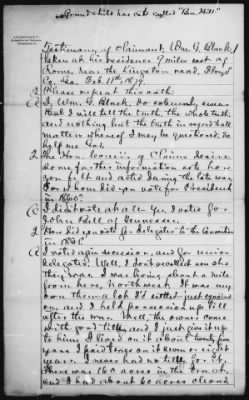 Testimony of Claimant, Wm. G. Black,
taken at his residence 9 miles east of
Rome, near the Kingston road, Floyd
Co. Ga. Feb. 11th 1879.
Q Please repeat this oath.
A I, Wm. G. Black, do solemnly swear
that I will tell the truth, the whole truth
and nothing but the truth in regard to all
matters whereof I may be questioned, so
help me God.
Q The Hon. Com'rs of Claims desire
some further information as to how
you felt and voted during the late war.
For whom did you vote for President
in 1860?
A I voted for
John Bell of Tennessee.
Q How did you vote for delegates to the Convention
in 1861?
A I voted again secession, and for union
delegates. Well, I don't recollect now who
they was. I was living about a mile
from here, Northwest. It was my
own then a lot I'd settled
and I held possession up till
after the war. Well, the owner come
with good title, and I just give it up
to him. I lived on it about twenty five
years. I paid taxes on it seven or eight
years. I never had no title for it.
There was 160 acres in the tract
and I had about 60 acres cleared